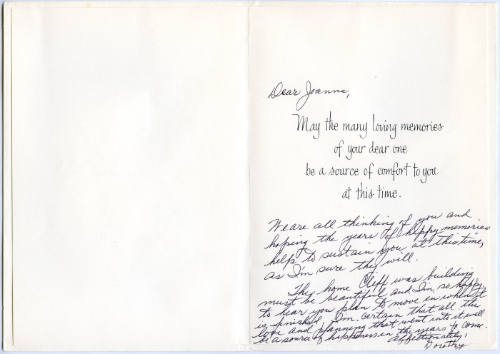 Dear Joanne,
May the many loving memories
of your dear one
be a source of comfort to you
at this time.
We are all thinking of you and
hoping the years of happy memories
help to sustain you at this time,
as I'm sure they will.
The home Cleff was building
must be beautiful and I'm so happy
to hear you plan to move in when it
is finished. I'm certain that all the
love and planning that went into it will
be a source of happiness in the years to come.
Affectionately,
Dorothy